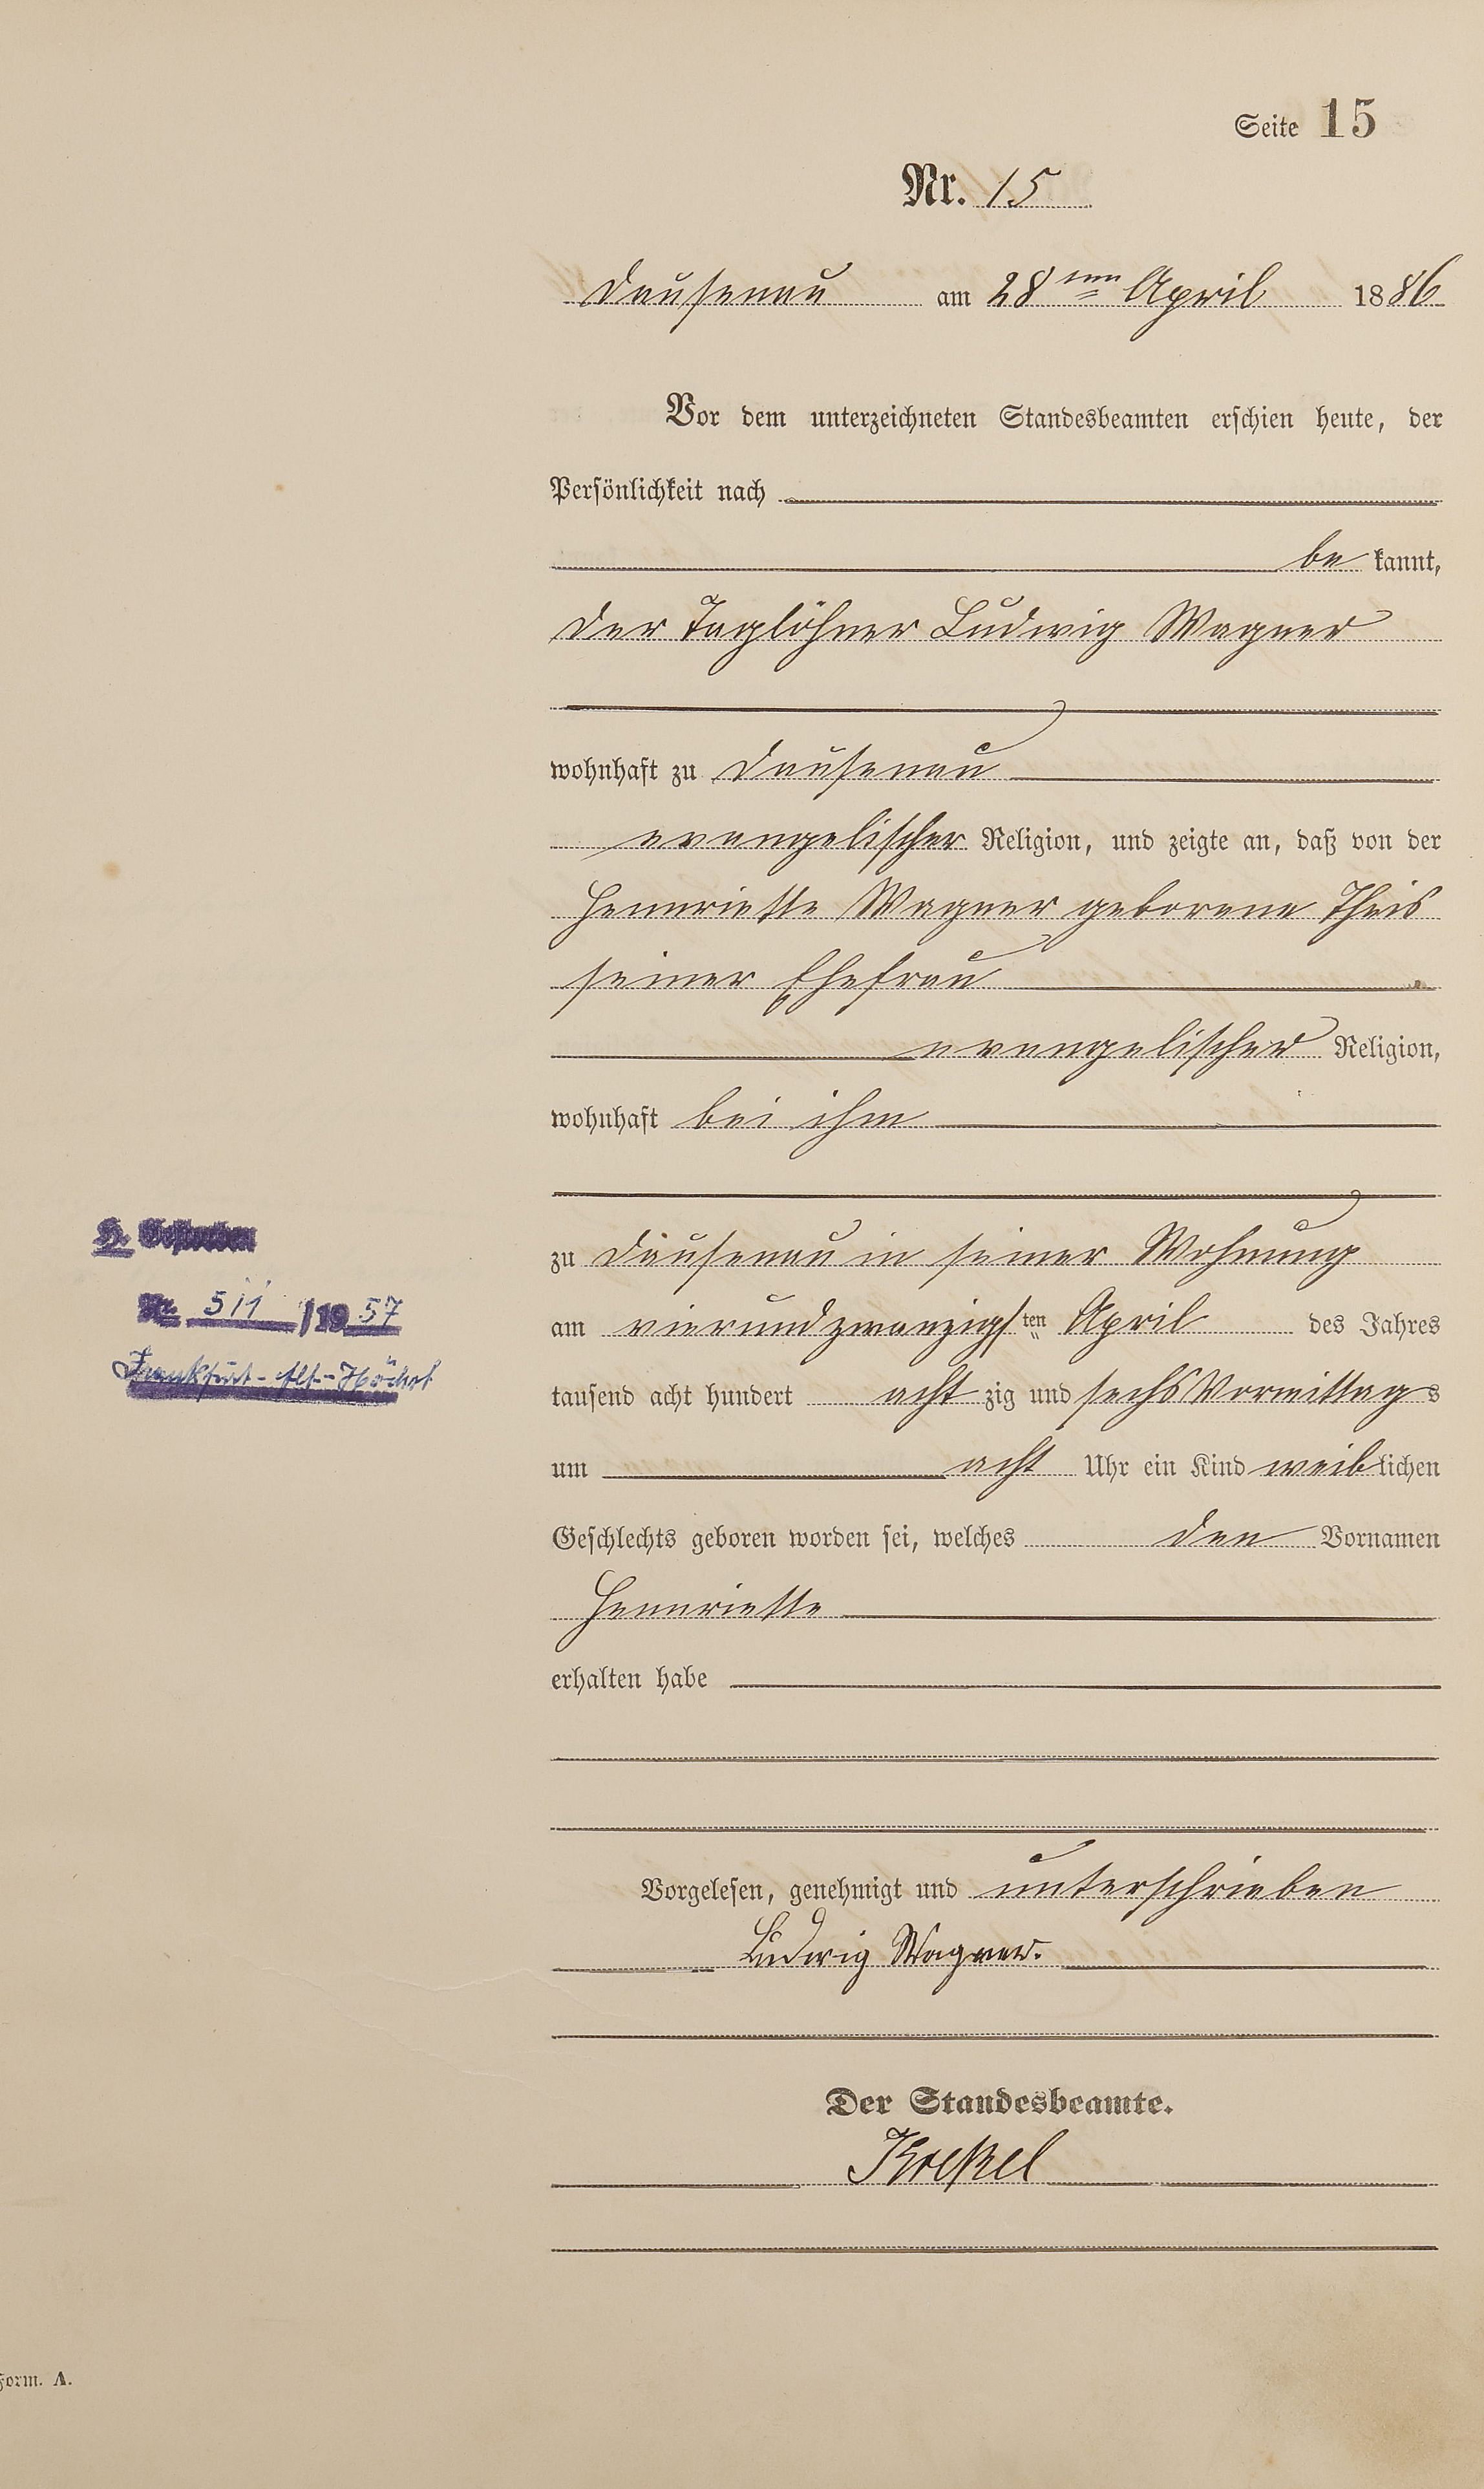 Seite 15
Nr. 15
Dausenau am 28ten April 1886
Vor dem unterzeichneten Standesbeamten erschien heute, der
Persönlichkeit nach
be kannt,
der Taglöhner Ludwig Wagner
wohnhaft zu Dausenau
evangelischer Religion, und zeigte an, daß von der
Hennriette Wagner geborene Theis
seiner Ehefrau
evangelischer Religion,
wohnhaft bei ihm
zu Dausenau in seiner Wohnung
am vierundzwanzigsten April des Jahres
tausend acht hundert achtzig und sechs Vormittags
um acht Uhr ein Kind weiblichen
Geschlechts geboren worden sei, welches den Vornamen
Hennriette
erhalten habe
Vorgelesen, genehmigt und unterschrieben
Ludwig Wagner.
Der Standesbeamte.
H. Gestorben
Nr. 511/1957
Frankfurt-Höchst
Form. A.